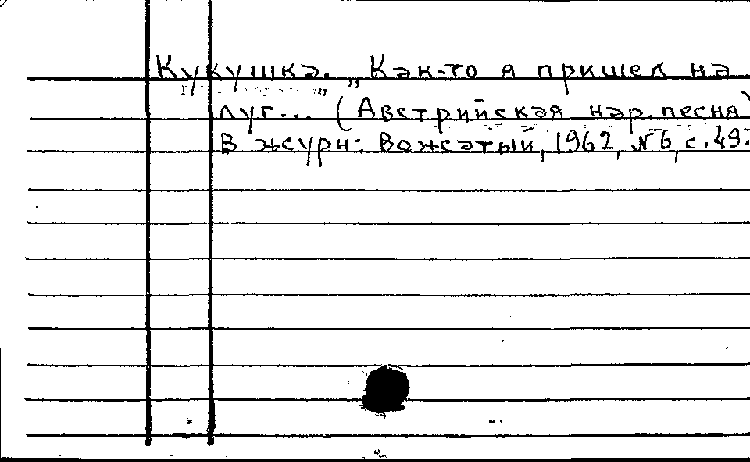 Кукушка. „Как-то я пришел на
луг... (Австрийская нар. песня)
В журн: Вожатый, 1962, №6, с. 49.